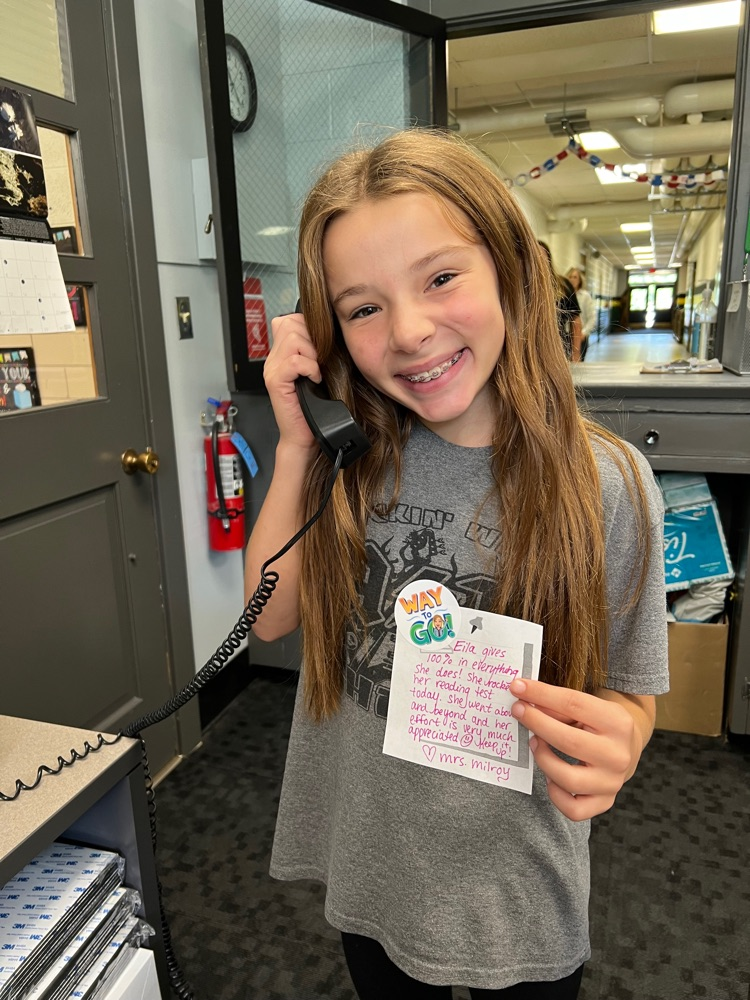 YOUR
KIN' W
WAY
TO
GO!
Eila gives
100% in everything
she does! She rocked
her reading test
today. She went above
and beyond and her
effort is very much
appreciated ☺ Keep it
up!
♡ mrs. milroy
3M